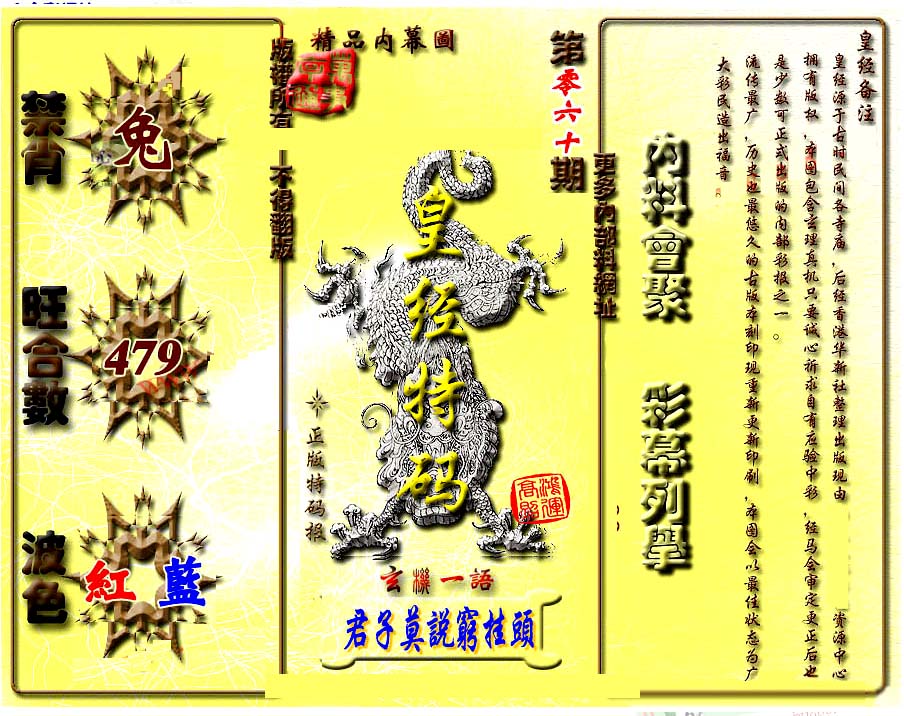 精品內幕圖
第零六十期
版權所有
不得翻版
更多內部料網址
禁肖
兔
旺合數
479
波色
紅 藍
皇经特码
正版特码报
鴻運高照
玄機一語
君子莫說窮挂頭
內料會聚
彩幕列舉
皇经备注
皇经源于古时民间各寺庙，后经香港华新社整理出版现由 资源中心
拥有版权，本图包含玄理真机只要诚心祈求自有应验中彩，经马会审定更正后也
是少数可正式出版的内部彩报之一。
流传最广，历史也最悠久的古版本刻印现重新更新印刷，本图会以最佳状态为广
大彩民造出福音